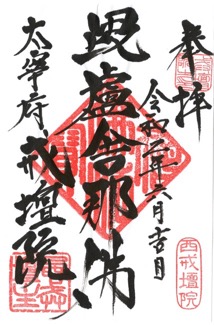 奉拝
令和二年六月吉日
毘盧舎那佛
太宰府 戒壇院
西戒壇院